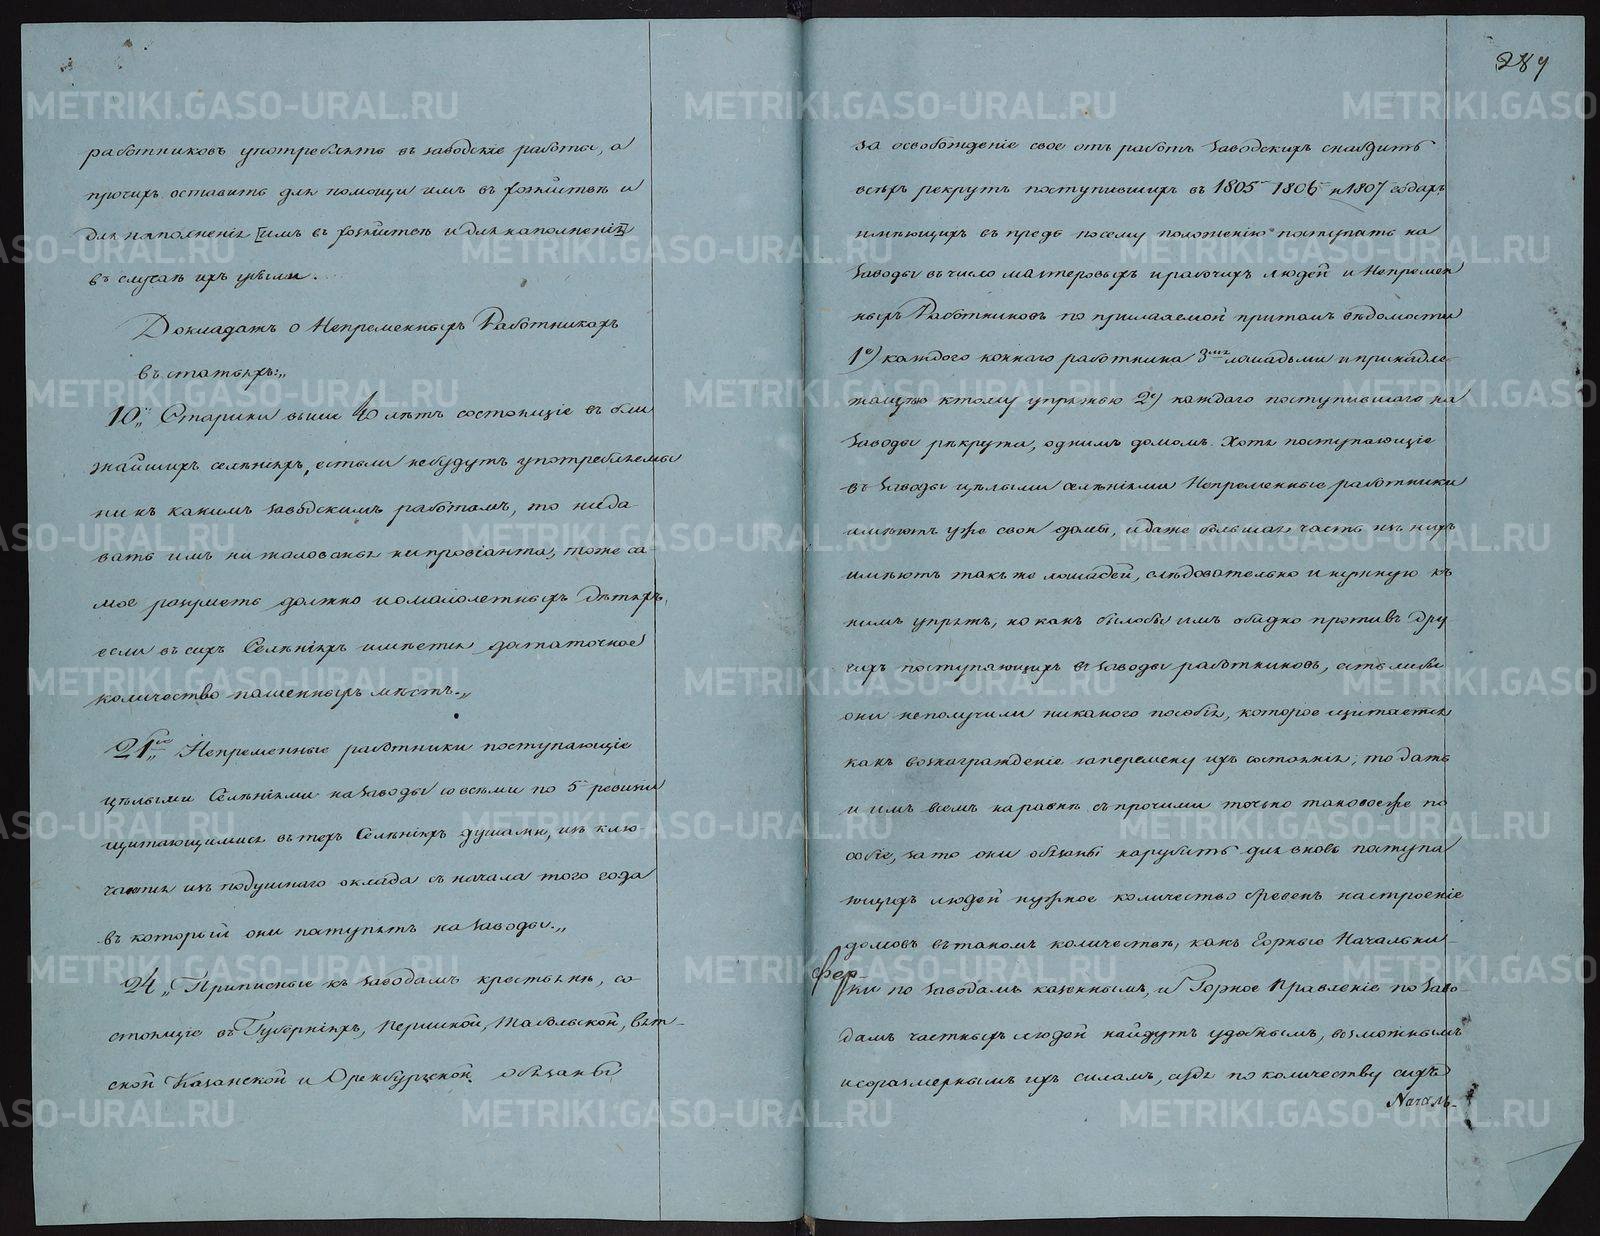 работниковъ употреблять въ заводскіе работы, а
прочихъ оставить для помощи имъ въ хозяйствѣ и
для наполненія [имъ въ хозяйствѣ и для наполненія]
въ случаѣ ихъ убыли.
Докладатъ о Непременныхъ Работникахъ
въ статьяхъ:„
10„ Старики выше 40 лѣтъ состоящіе въ бли
жайшихъ селѣніяхъ, естьли небудутъ употребляемы
ни къ какимъ заводскимъ работамъ, то неда-
вать имъ ни жалованья ни провіанта; тоже са-
мое разуметь должно и омалолетныхъ дѣтяхъ,
если въ сихъ Селѣніяхъ имѣется достаточное
количество пашенныхъ мѣстъ.„
21ое„ Непременные работники поступающіе
цѣлыми Селѣніями на заводы со всѣми по 5 ревизіи
щитающимися въ техъ Селѣніяхъ душами, изъ клю
чаются изъ подушнаго оклада съ начала того года
въ который они поступятъ на заводы.„
24„ Приписные къ заводамъ крестьянѣ, со-
стоящіе въ Губерніяхъ, Пермской, Табольской, Вят-
ской Казанской и Оренбурзской, Обязаны
289
за освобожденіе свое отъ работъ заводскихъ снабдить
всѣхъ рекрутъ поступившихъ въ 1805 1806 и 1807 годахъ
имѣющихъ въ предь посему положенію поступать на
заводы въ число мастеровыхъ и рабочихъ людей и Непремен
ныхъ Работниковъ по прилагаемой притомъ вѣдомости
1е) каждого коннаго работника 3мя лошадьми и принадле-
жащею ктому упряжью 2е) каждаго поступившаго на
заводы рѣкрута, однимъ домомъ. Хотя поступающіе
въ заводы цѣлыми селѣніями Непременные работники
имѣютъ уже свои домы, и даже большая часть изъ нихъ
имѣютъ такъ же лошадей, слѣдовательно и нужную къ
нимъ упряжь, но какъ былобы имъ обидно противъ дру
гихъ поступающихъ въ заводы работниковъ, есть либы
они неполучили никакого пособія, которое щитается
какъ вознагражденіе за перемену ихъ состоянія; то дать
и имъ всемъ наравнѣ съ прочими точно таковоеже по
собіе, зато они обязаны нарубить для вновь поступа
ющихъ людей нужное количество бревенъ настроеніе
домовъ въ такомъ количествѣ, какъ Горные Начальни-
фер
ки по заводамъ казеннымъ, и Горное Правленіе по заво-
дамъ частныхъ людей найдутъ удобнымъ, возможнымъ
исоразмернымъ ихъ силамъ, судя по количеству сихъ
Началь-